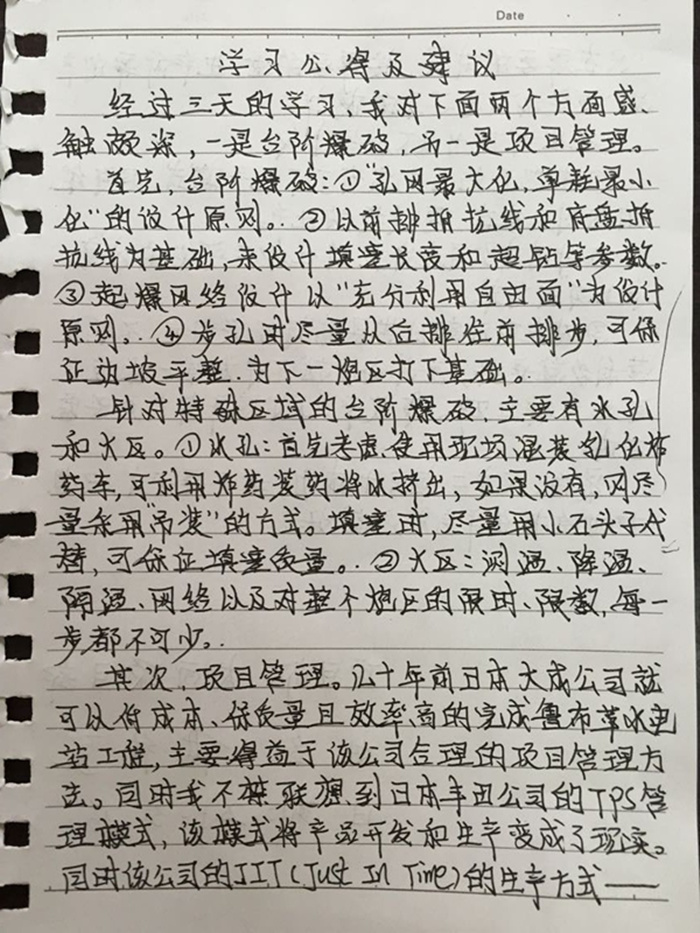 Date
学习心得及建议
经过三天的学习、我对下面两个方面感
触颇深，一是台阶爆破，另一是项目管理。
首先，台阶爆破：①“孔网最大化，单耗最小
化”的设计原则。②以前排抵抗线和底盘抵
抗线为基础，来设计填塞长度和超钻等参数。
③起爆网络设计以“充分利用自由面”为设计
原则。④步孔时尽量从后排往前排步，可保
证边坡平整，为下一炮区打下基础。
针对特殊区域的台阶爆破，主要有水孔
和火区。①水孔：首先考虑使用现场混装乳化炸
药车，可利用炸药装药将水挤出，如果没有，则尽
量采用“吊装”的方式。填塞时，尽量用小石头子代
替，可保证填塞质量。②火区：测温、降温、
隔温、网络以及对整个炮区的限时、限数，每一
步都不可少。
其次，项目管理。几十年前日本大成公司就
可以低成本、保质量且效率高的完成鲁布革水电
站工程，主要得益于该公司合理的项目管理方
法。同时我不禁联想到日本丰田公司的TPS管
理模式，该模式将产品开发和生产变成了现实。
同时该公司的JIT(Just In Time)的生产方式——